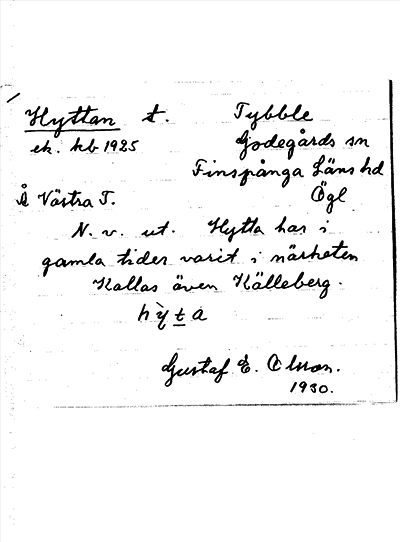 Hyttan t. Tybble
ek. kb 1925 Godegårds sn
Finspånga Läns hd
Å Västra T. Ögl
N. v. ut. Hytta har i
gamla tider varit i närheten
Kallas även Källeberg.
hỳta
Gustaf E. Olsson.
1930.